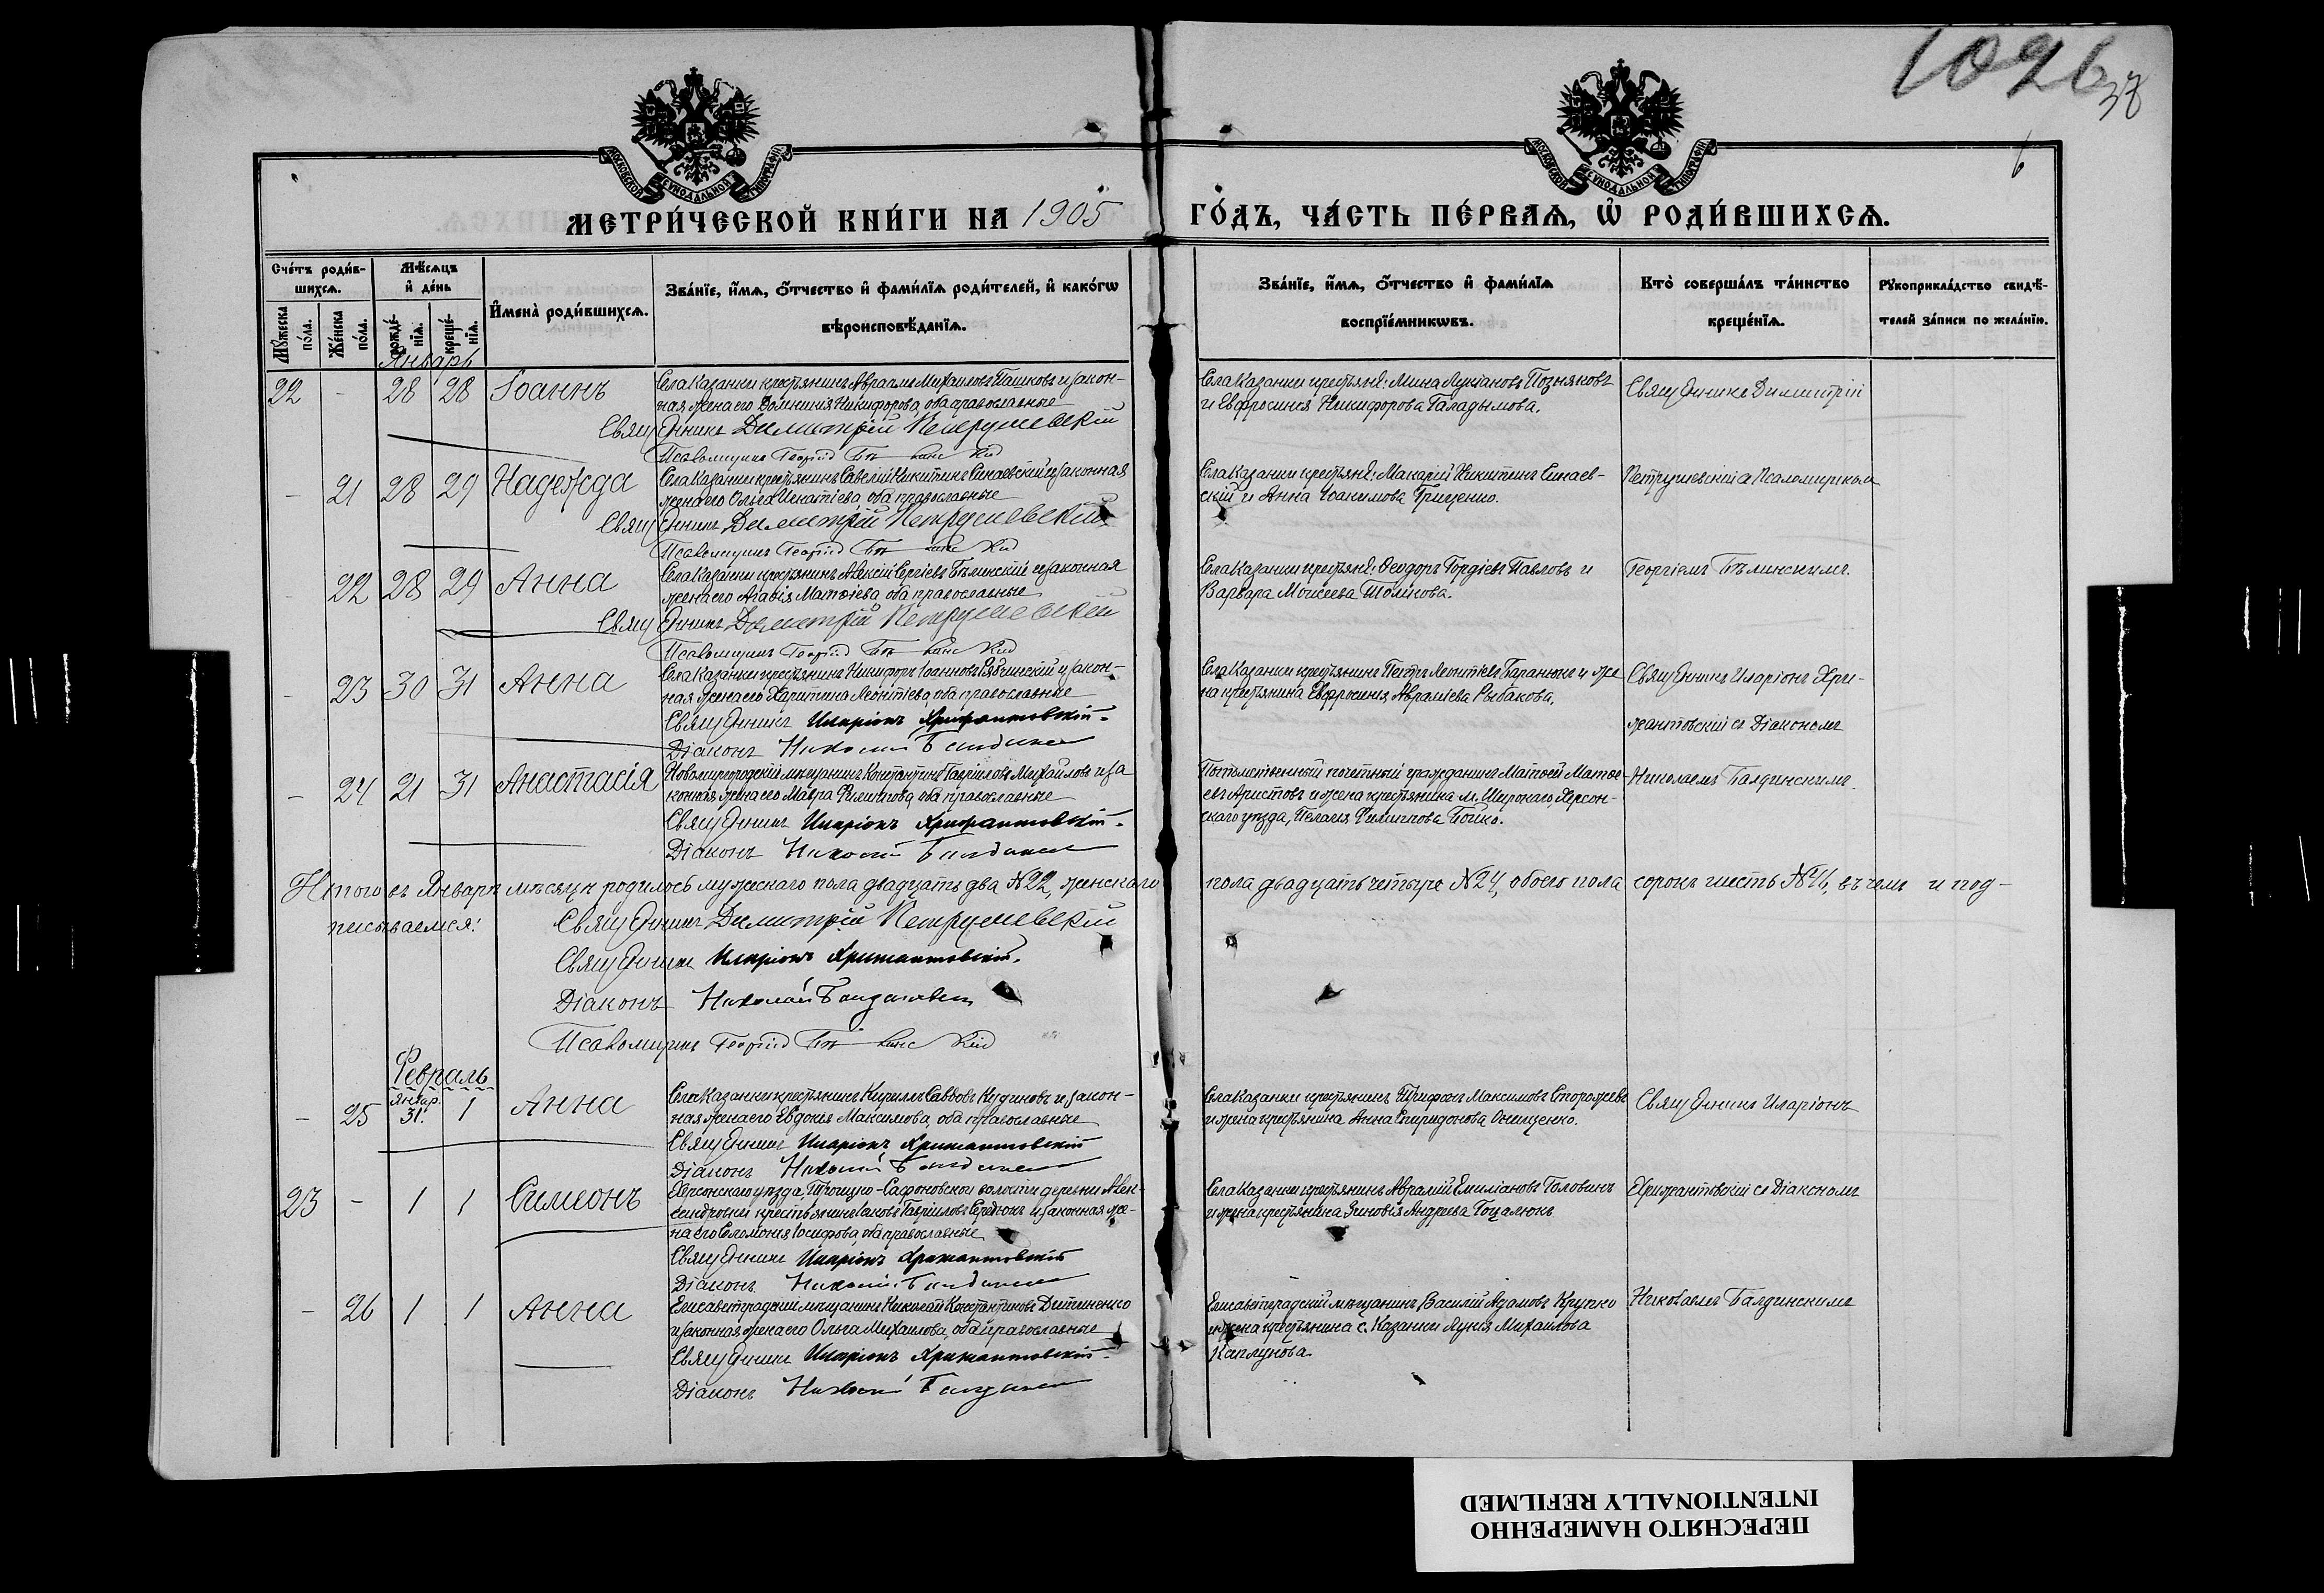 1026
38
6
МОСКОВСКОЙ СѴНОДАЛЬНОЙ ТИПОГРАФІИ
МОСКОВСКОЙ СѴНОДАЛЬНОЙ ТИПОГРАФІИ
МЕТРИ́ЧЕСКОЙ КНИ́ГИ НА 1905 ГО́ДЪ, ЧА́СТЬ ПЕ́РВАѦ, Ѡ҆ РОДИ́ВШИХСѦ.
Сче́тъ роди́в-
шихсѧ.
Мꙋ́жеска по́ла.
Же́нска по́ла.
Мѣ́сѧцъ и҆ де́нь
рожде́-нїѧ.
креще́-нїѧ.
И҆мена̀ роди́вшихсѧ.
Зва́нїе, и҆́мѧ, ѻ҆́тчество и҆ фами́лїѧ роди́телей, и҆ како́гѡ
вѣроисповѣ́данїѧ.
Зва́нїе, и҆́мѧ, ѻ҆́тчество и҆ фами́лїѧ
воспрїе́мникѡвъ.
Кто̀ соверша́лъ та́инство
креще́нїѧ.
Рꙋкоприкла́дство свидѣ́-
телей за́писи по жела́нїю.
Январь
22 - 28 28 Іоаннъ
Села Казанки крестьянинъ Авраамъ Михаиловъ Пашковъ и закон-
ная жена его Домникія Никифорова, оба православные
Священникъ Димитрій Петрушевскій
Псаломщикъ Георгій Бѣлинскій
Села Казанки крестьяне: Мина Лукіановъ Позняковъ
и Евфросинія Никифорова Галадымова.
Священникъ Димитрій
- 21 28 29 Надежда
Села Казанки крестьянинъ Савелій Никитинъ Синаевскій и законная
жена его Ольга Игнатіева, оба православные
Священникъ Димитрій Петрушевскій
Псаломщикъ Георгій Бѣлинскій
Села Казанки крестьяне: Макарій Никитинъ Синаев-
скій и Анна Іоакимова Гриценко.
Петрушевскій съ Псаломщикомъ
- 22 28 29 Анна
Села Казанки крестьянинъ Алексій Сергіевъ Бѣлинскій и законная
жена его Агафія Матѳіева, оба православные
Священникъ Димитрій Петрушевскій
Псаломщикъ Георгій Бѣлинскій
Села Казанки крестьяне: Ѳеодоръ Гордіевъ Павловъ и
Варвара Моисеева
Георгіемъ Бѣлинскимъ.
- 23 30 31 Анна
Села Казанки крестьянинъ Никифоръ Іоанновъ и закон-
ная жена его Харитина Леонтіева, оба православные
Священникъ Иларіонъ Крижантовскій.
Діаконъ Николай
Села Казанки крестьянинъ Петръ Леонтіевъ Баранюкъ и же-
на крестьянина Евфросинія Авраміева Рыбакова.
Священникъ Иларіонъ Кри-
жантовскій съ Діакономъ
- 24 21 31 Анастасія
Новомиргородскій мѣщанинъ Константинъ Гавріиловъ Михайловъ и за-
конная жена его Мавра Филиппова, оба православные
Священникъ Иларіонъ Крижантовскій.
Діаконъ Николай
Потомственный почетный гражданинъ Матѳей Матѳе-
евъ Аристовъ и жена крестьянина м. Широкаго, Херсон-
скаго уѣзда, Пелагія Филиппова Бойко.
Николаемъ Балдинскимъ.
Итого въ Январѣ мѣсяцѣ родилось мужескаго пола двадцать два №22, женскаго пола двадцать четыре №24, обоего пола сорокъ шесть №46, въ чемъ и под-
писываемся:
Священникъ Димитрій Петрушевскій
Священникъ Иларіонъ Крижантовскій.
Діаконъ Николай
Псаломщикъ Георгій Бѣлинскій
Февраль
- 25 Январ. 31. 1 Анна
Села Казанки крестьянинъ Кириллъ Саввовъ Кудиновъ и закон-
ная жена его Евдокія Максимова, оба православные
Священникъ Иларіонъ Крижантовскій
Діаконъ Николай
Села Казанки крестьянинъ Трифонъ Максимовъ Сторожевъ
и жена крестьянина Анна Спиридонова Онищенко.
Священникъ Иларіонъ
23 - 1 1 Симеонъ
Херсонскаго уѣзда, Троицко-Сафоновской волости деревни Алек-
сандровки крестьянинъ Іаковъ Гавріиловъ Середюкъ и законная же-
на его Соломонія Іосифова, оба православные
Священникъ Иларіонъ Крижантовскій
Діаконъ Николай
Села Казанки крестьянинъ Аврамій Емиліановъ Головинъ
и жена крестьянина Зиновія Андреева Гоцалюкъ
Крижантовскій съ Діакономъ
- 26 1 1 Анна
Елисаветградскій мѣщанинъ Николай Константиновъ Дитиненко
и законная жена его Ольга Михаилова, оба православные
Священникъ Иларіонъ Крижантовскій.
Діаконъ Николай
Елисаветградскій мѣщанинъ Василій Адамовъ Крупко
и жена крестьянина с. Казанки Лукія Михаилова
Каплунова.
Николаемъ Балдинскимъ
ПЕРЕСНЯТО НАМЕРЕННО
INTENTIONALLY REFILMED